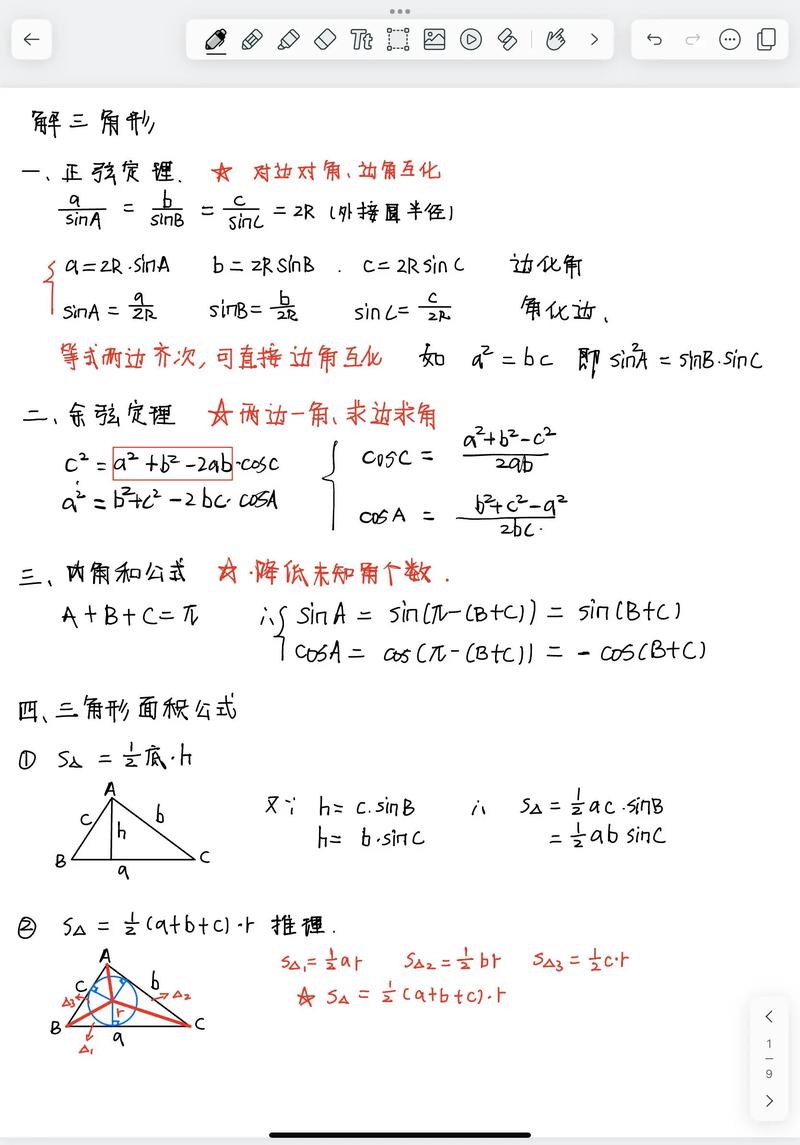 Tt
解三角形
一、正弦定理. ☆ 对边对角、边角互化
a/sinA = b/sinB = c/sinC = 2R (外接圆半径)
a=2R·sinA b=2RsinB . c=2RsinC 边化角
sinA = a/2R sinB = b/2R sinC = c/2R 角化边、
等式两边齐次,可直接边角互化 如 a² = bc 即 sin²A = sinB·sinC
二、余弦定理 ☆两边一角、求边求角
c² = a²+b²-2ab·cosC cosC = a²+b²-c²/2ab
a² = b²+c²-2bc·cosA cosA = b²+c²-a²/2bc.
三、内角和公式 ☆·降低未知角个数.
A+B+C=π ∴ sinA = sin(π-(B+C)) = sin(B+C)
cosA = cos(π-(B+C)) = -cos(B+C)
四、三角形面积公式
① S△ = 1/2底·h
A
c h b
B a C
又∵ h = c.sinB ∴ S△ = 1/2ac·sinB
h = b·sinC = 1/2ab sinC
② S△ = 1/2(a+b+c)·r 推理.
A
c b
△3 r △2
B a C
△1
S△1 = 1/2ar S△2 = 1/2br S△3 = 1/2c·r
☆ S△ = 1/2(a+b+c)·r
1
9